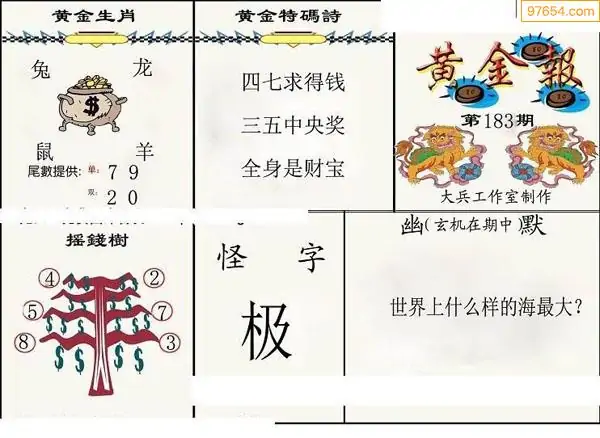 97654.com
黄金生肖
兔 龙
鼠 羊
尾數提供: 单: 7 9
双: 2 0
黄金特碼詩
四七求得钱
三五中央奖
全身是财宝
黄金報
第183期
大兵工作室制作
摇錢樹
④ ②
⑤ ⑦
⑧ ③
怪 字
极
幽(玄机在期中)默
世界上什么样的海最大?